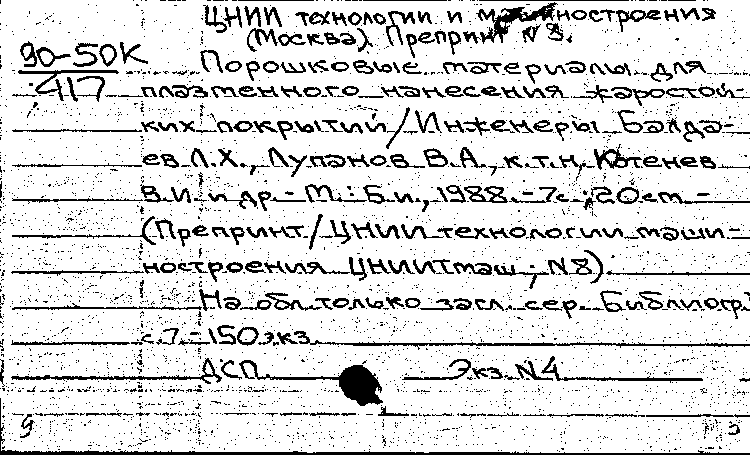 ЦНИИ технологии и машиностроения
(Москва). Препринт N 8.
90-50К
417
Порошковые материалы для
плазменного нанесения жаростой-
ких покрытий/Инженеры Балда-
ев Л.Х., Лупанов В.А., к.т.н. Котенев
В.И. и др. - М.: Б.и., 1988. - 7с.; 20см. -
(Препринт/ЦНИИ технологии маши-
ностроения ЦНИИТмаш; N8).
На обл. только загл. сер. Библиогр.:
с.7. - 150 экз.
ДСП. Экз. N4
9